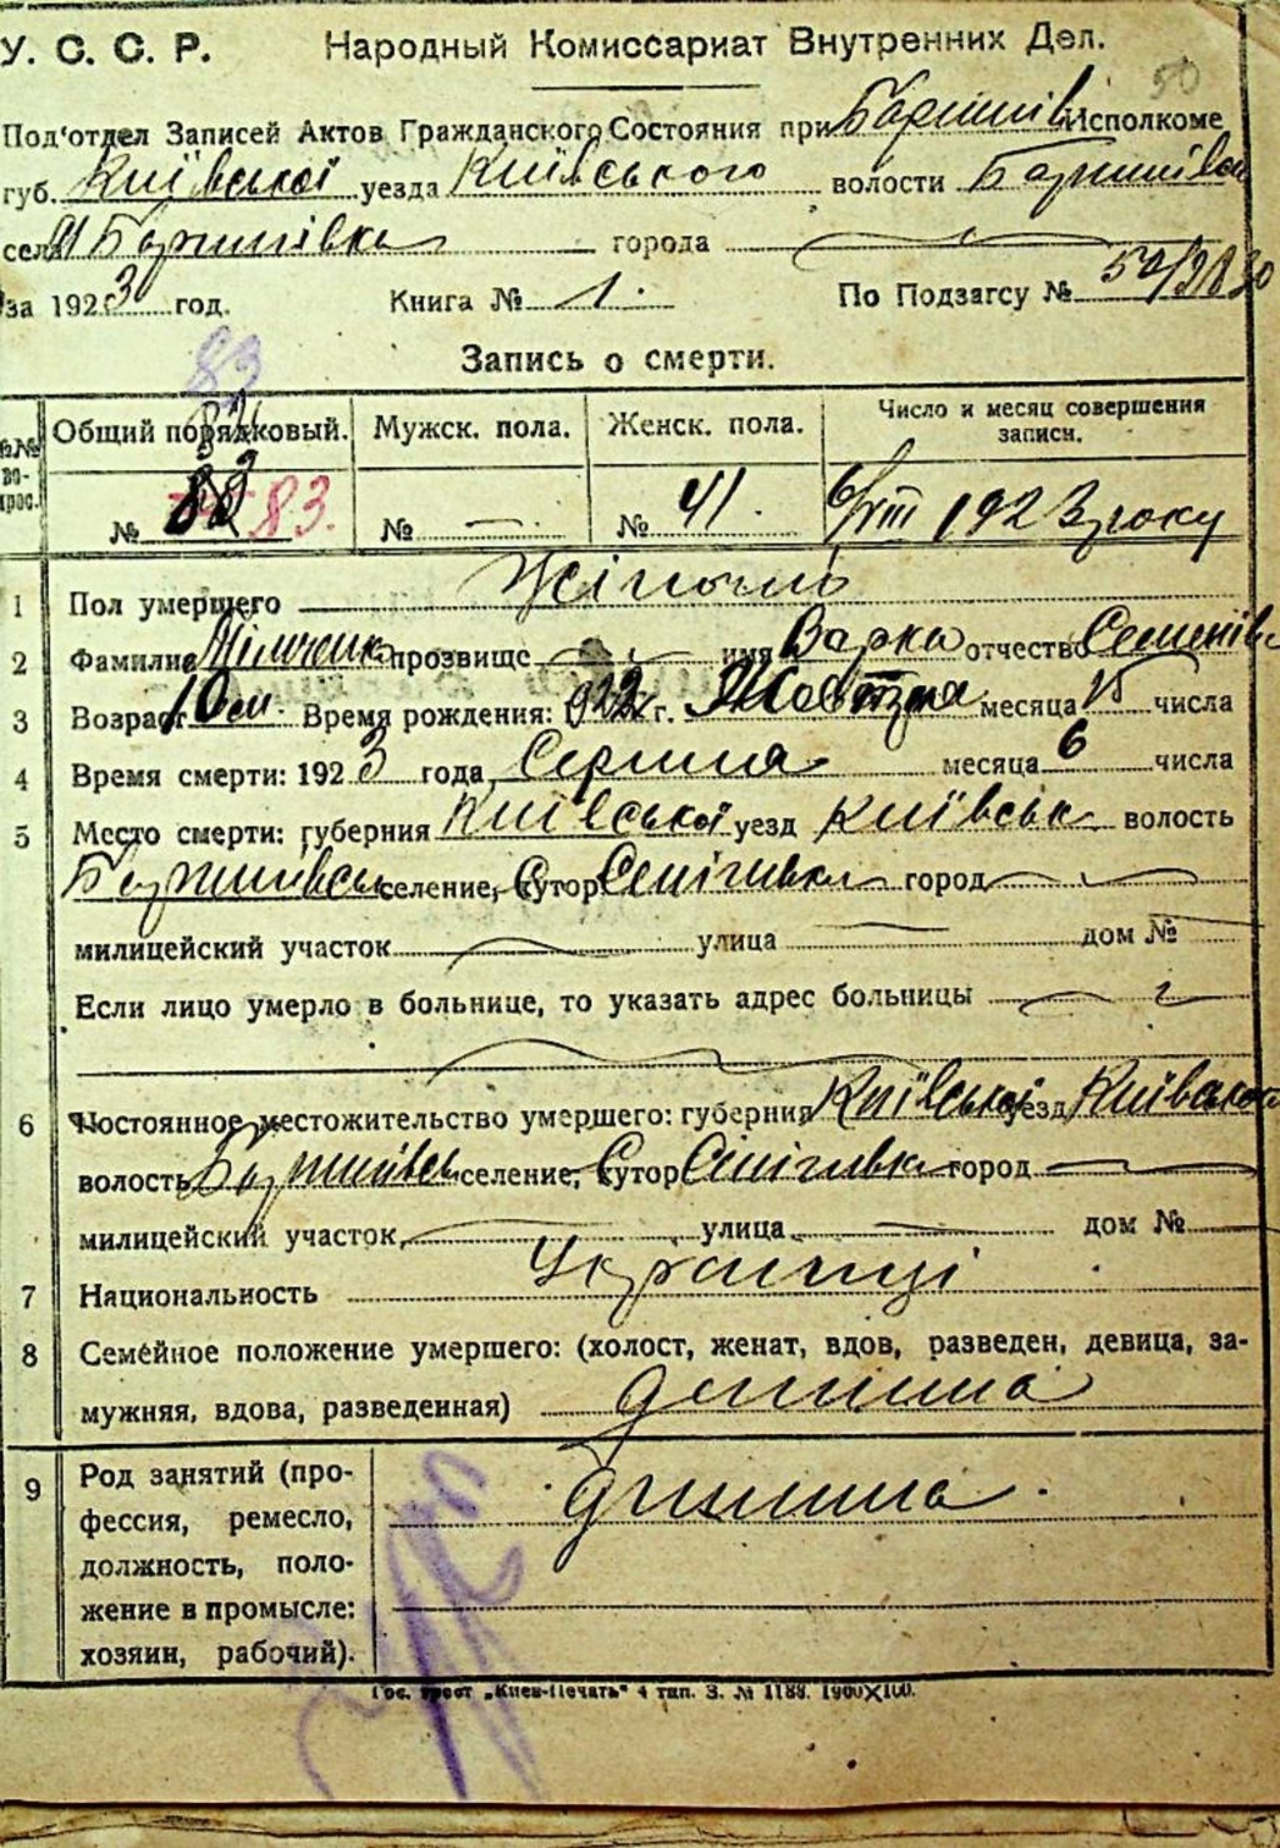 50
У. С. С. Р. Народный Комиссариат Внутренних Дел.
Под'отдел Записей Актов Гражданского Состояния при Баришів Исполкоме
губ. Київської уезда Київського волости Баришівськ
села М Баришівка города
за 1923 год. Книга № 1. По Подзагсу №
Запись о смерти.
83
№№ вопрос. Общий порядковый. Мужск. пола. Женск. пола. Число и месяц совершения записи.
№ 83. № — № 41. 6/VIII 1923 року
1 Пол умершего Жіночій
2 Фамилия прозвище имя Варка отчество Семенівна
3 Возраст 10 м. Время рождения: 922 г. Жовтня месяца 15 числа
4 Время смерти: 1923 года Серпня месяца 6 числа
5 Место смерти: губерния Київської уезд Київськ волость
Баришівськ селение, хутор Селігивка город
милицейский участок улица дом №
Если лицо умерло в больнице, то указать адрес больницы
6 Постоянное местожительство умершего: губерния Київської уезд Київської
волость Баришівськ селение, хутор Селігивка город
милицейский участок улица дом №
7 Национальность Українці
8 Семейное положение умершего: (холост, женат, вдов, разведен, девица, за-
мужняя, вдова, разведенная) дитина
9 Род занятий (про- дитина.
фессия, ремесло,
должность, поло-
жение в промысле:
хозяин, рабочий).
Гос. трест „Киев-Печать" 4 тип. З. № 1188. 1900X100.